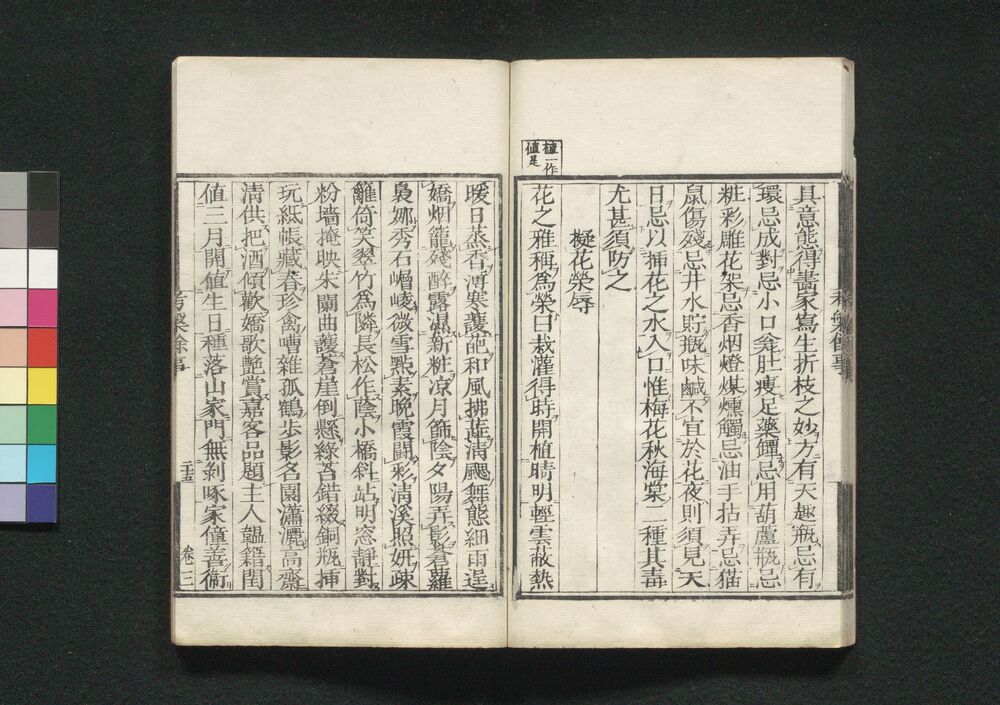 具意態得畵家寫生折枝之妙方有天趣瓶忌有
環忌成對忌小口瓮肚瘦足藥罈忌用葫蘆瓶忌
粧彩雕花架忌香烟燈煤燻觸忌油手拈弄忌猫
鼠傷殘忌井水貯瓶味鹹不宜於花夜則須見天
日忌以揷花之水入口惟梅花秋海棠二種其毒
尤甚須防之
擬花榮辱
植一作
値是
花之雅稱爲榮曰栽灌得時開植晴明輕雲蔽熱
暖日蒸香薄寒護葩和風拂蕋淸颸舞態細雨逞
嬌烟籠殘醉露濕新粧凉月篩陰夕陽弄影蒼蘿
裊娜秀石嶒崚微雪㸃素晚霞鬪彩淸溪照妍疎
籬倚笑翠竹爲隣長松作蔭小橋斜站明窓靜對
粉墻掩映朱闌曲護蒼崖倒懸綠苔錯綴銅瓶揷
玩紙帳藏春珍禽嘈雜孤鶴歩影名園瀟灑高齋
淸供把酒傾歡嬌歌艶賞嘉客品題主人韞籍閏
値三月開値生日種落山家門無剝啄家僮善衞
考槃餘事
二十五
卷三